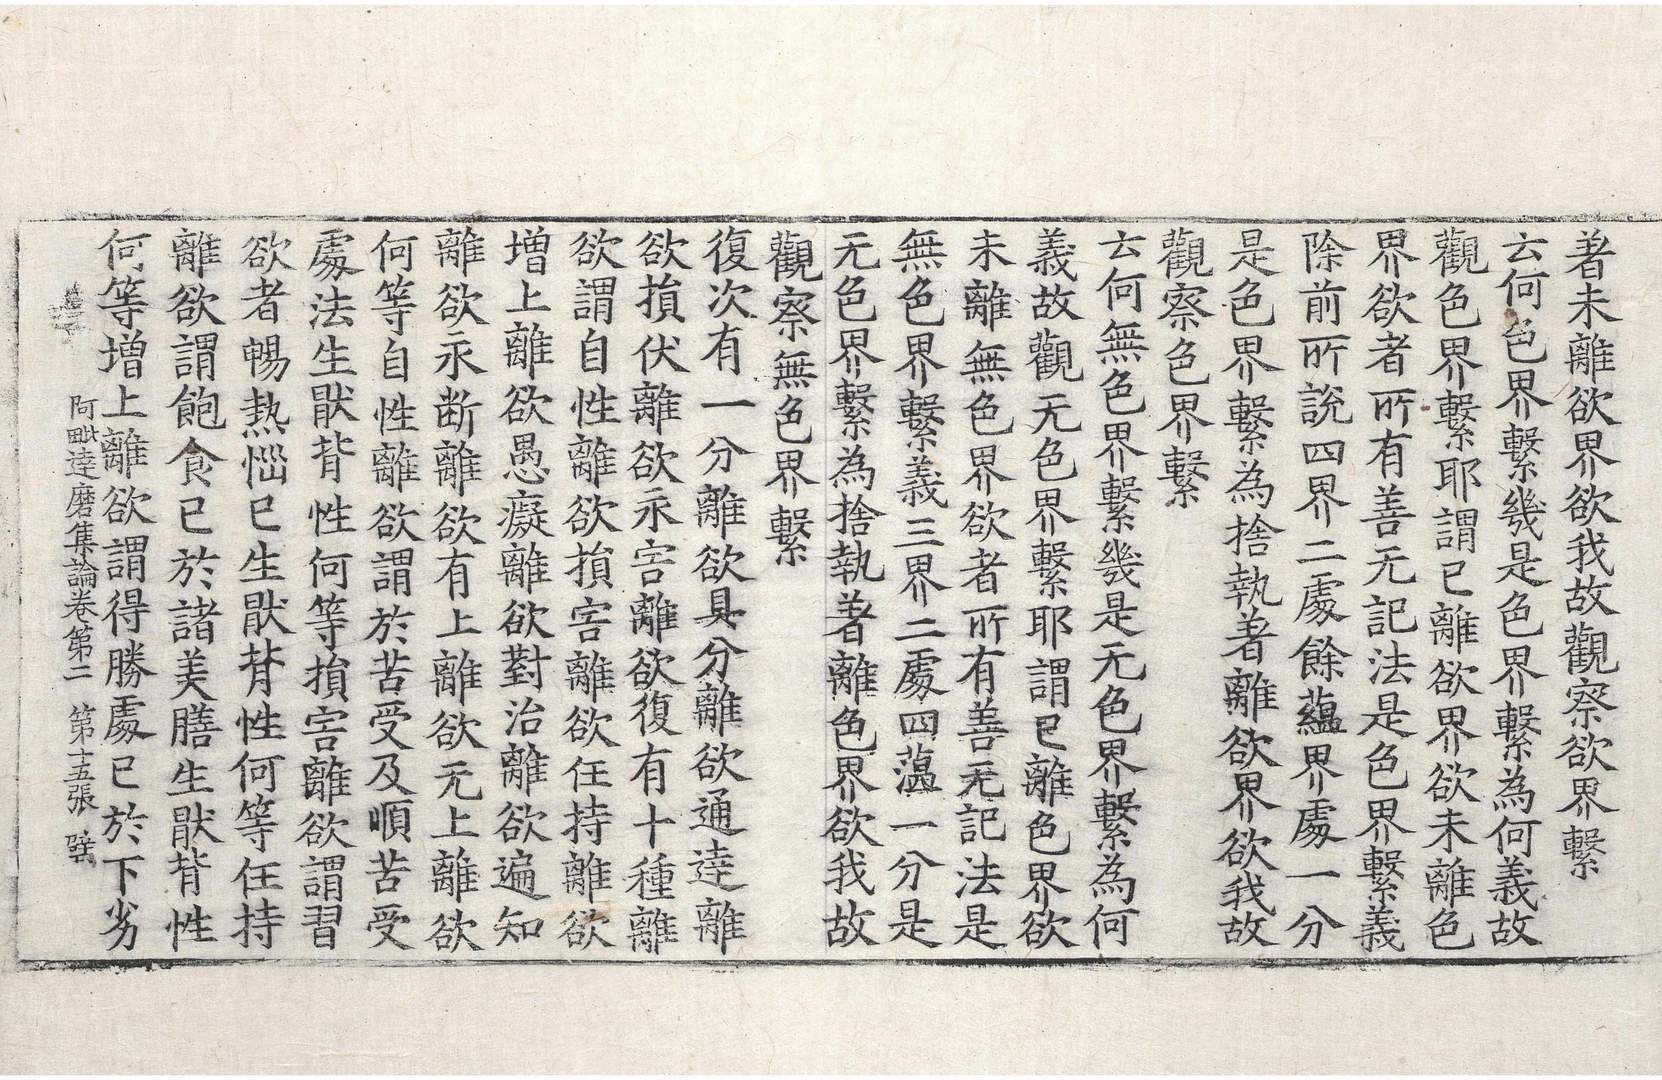 著未離欲界欲我故觀察欲界繫
云何色界繫幾是色界繫為何義故
觀色界繫耶謂已離欲界欲未離色
界欲者所有善无記法是色界繫義
除前所說四界二處餘蘊界處一分
是色界繫為捨執著離欲界欲我故
觀察色界繫
云何無色界繫幾是无色界繫為何
義故觀无色界繫耶謂已離色界欲
未離無色界欲者所有善无記法是
無色界繫義三界二處四蕰一分是
无色界繫為捨執著離色界欲我故
觀察無色界繫
復次有一分離欲具分離欲通達離
欲損伏離欲永害離欲復有十種離
欲謂自性離欲損害離欲任持離欲
增上離欲愚癡離欲對治離欲遍知
離欲永断離欲有上離欲无上離欲
何等自性離欲謂於苦受及順苦受
處法生猒背性何等損害離欲謂習
欲者暢熱惱已生猒背性何等任持
離欲謂飽食已於諸美膳生猒背性
何等增上離欲謂得勝處已於下劣
阿毗達磨集論卷第二 第十五張 璧